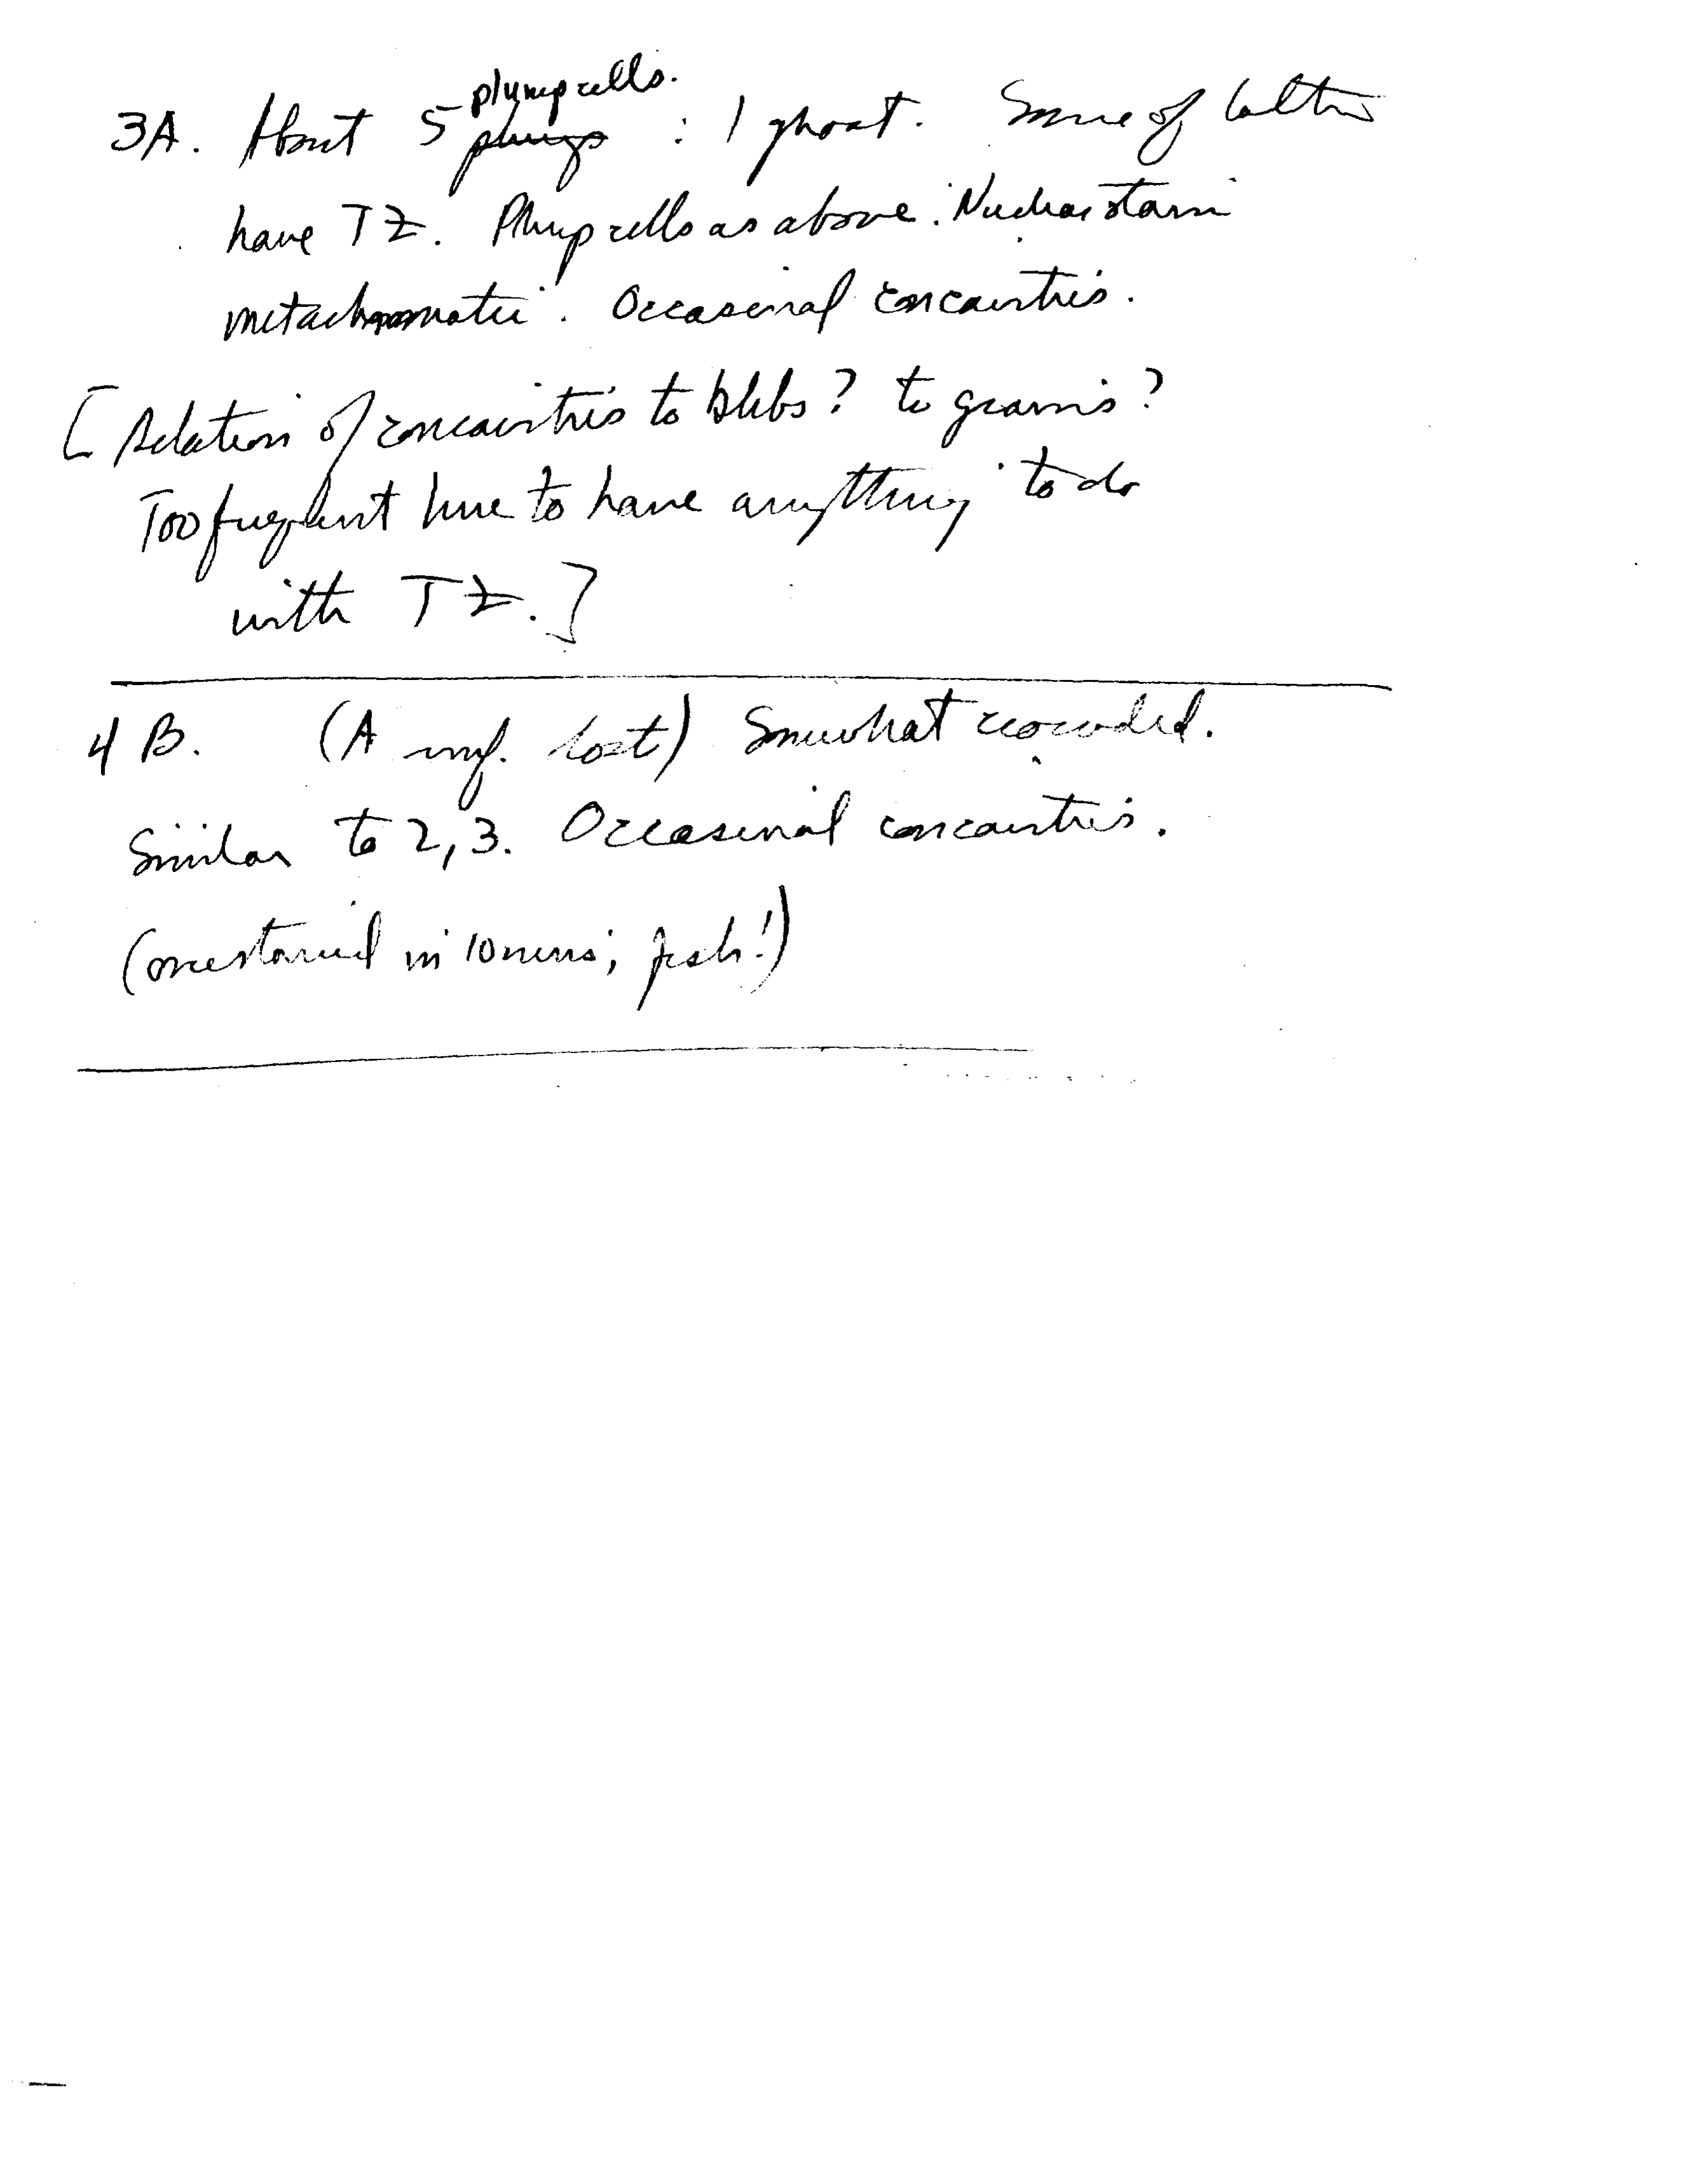 plump cells.
3A. About 5 plump : 1 ghost. Some of latter
have TZ. Plump cells as above. Nuclear stain
metachromatic. Occasional concavities.
[Relation of concavities to blebs? to grains?
Too frequent here to have anything to do
with TZ.]
4B. (A lost) Somewhat crowded.
Similar to 2, 3. Occasional concavities.
(overstained in 10 mins; fresh!)